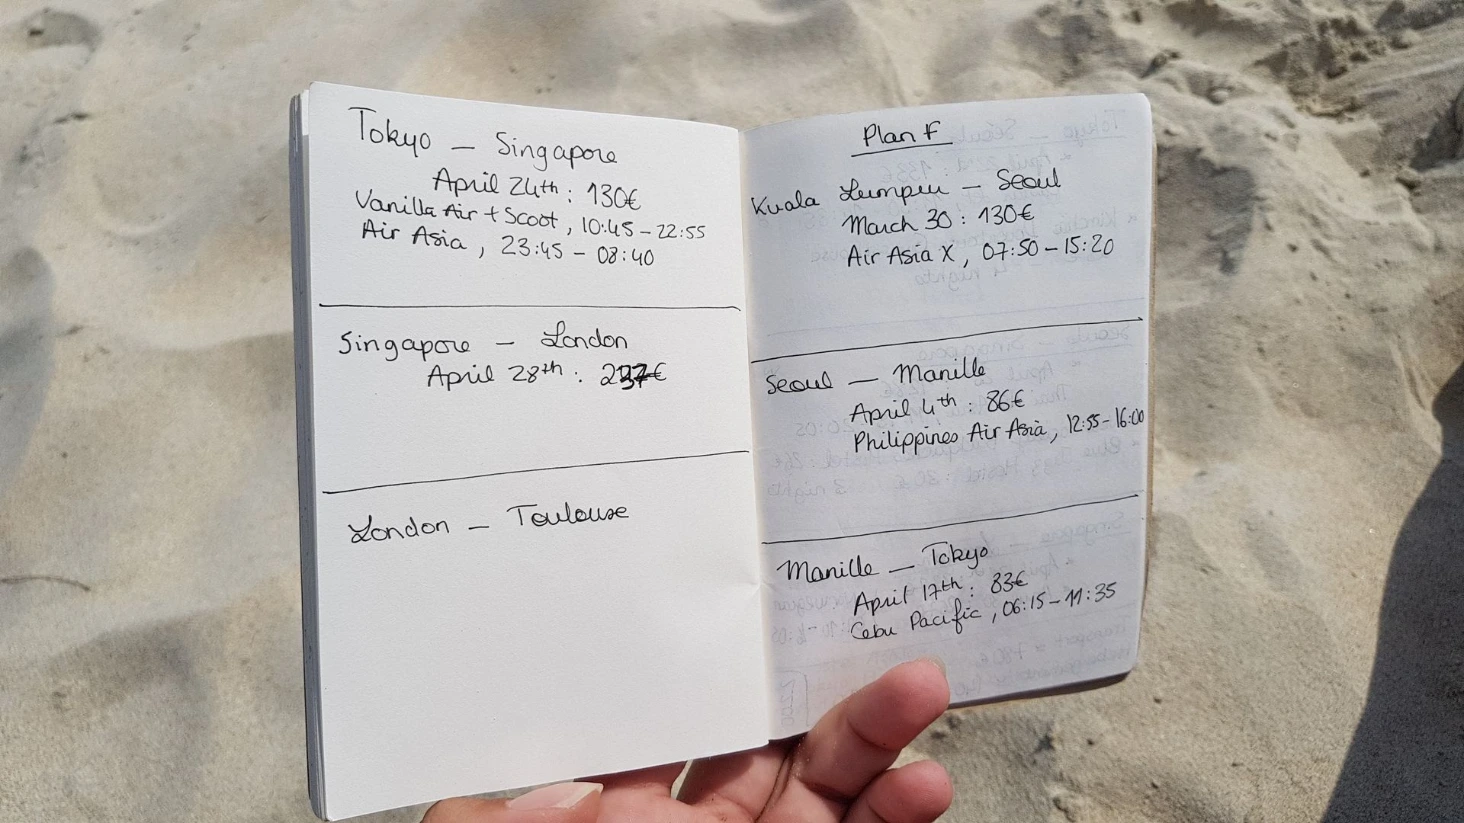 Tokyo — Singapore
April 24th : 130€
Vanilla Air + Scoot, 10:45 – 22:55
Air Asia, 23:45 – 08:40
Singapore — London
April 28th :
London — Toulouse
Plan F
Kuala Lumpur — Seoul
March 30 : 130€
Air Asia X, 07:50 – 15:20
Seoul — Manille
April 4th : 86€
Philippines Air Asia, 12:55 – 16:00
Manille — Tokyo
April 17th : 83€
Cebu Pacific, 06:15 – 11:35